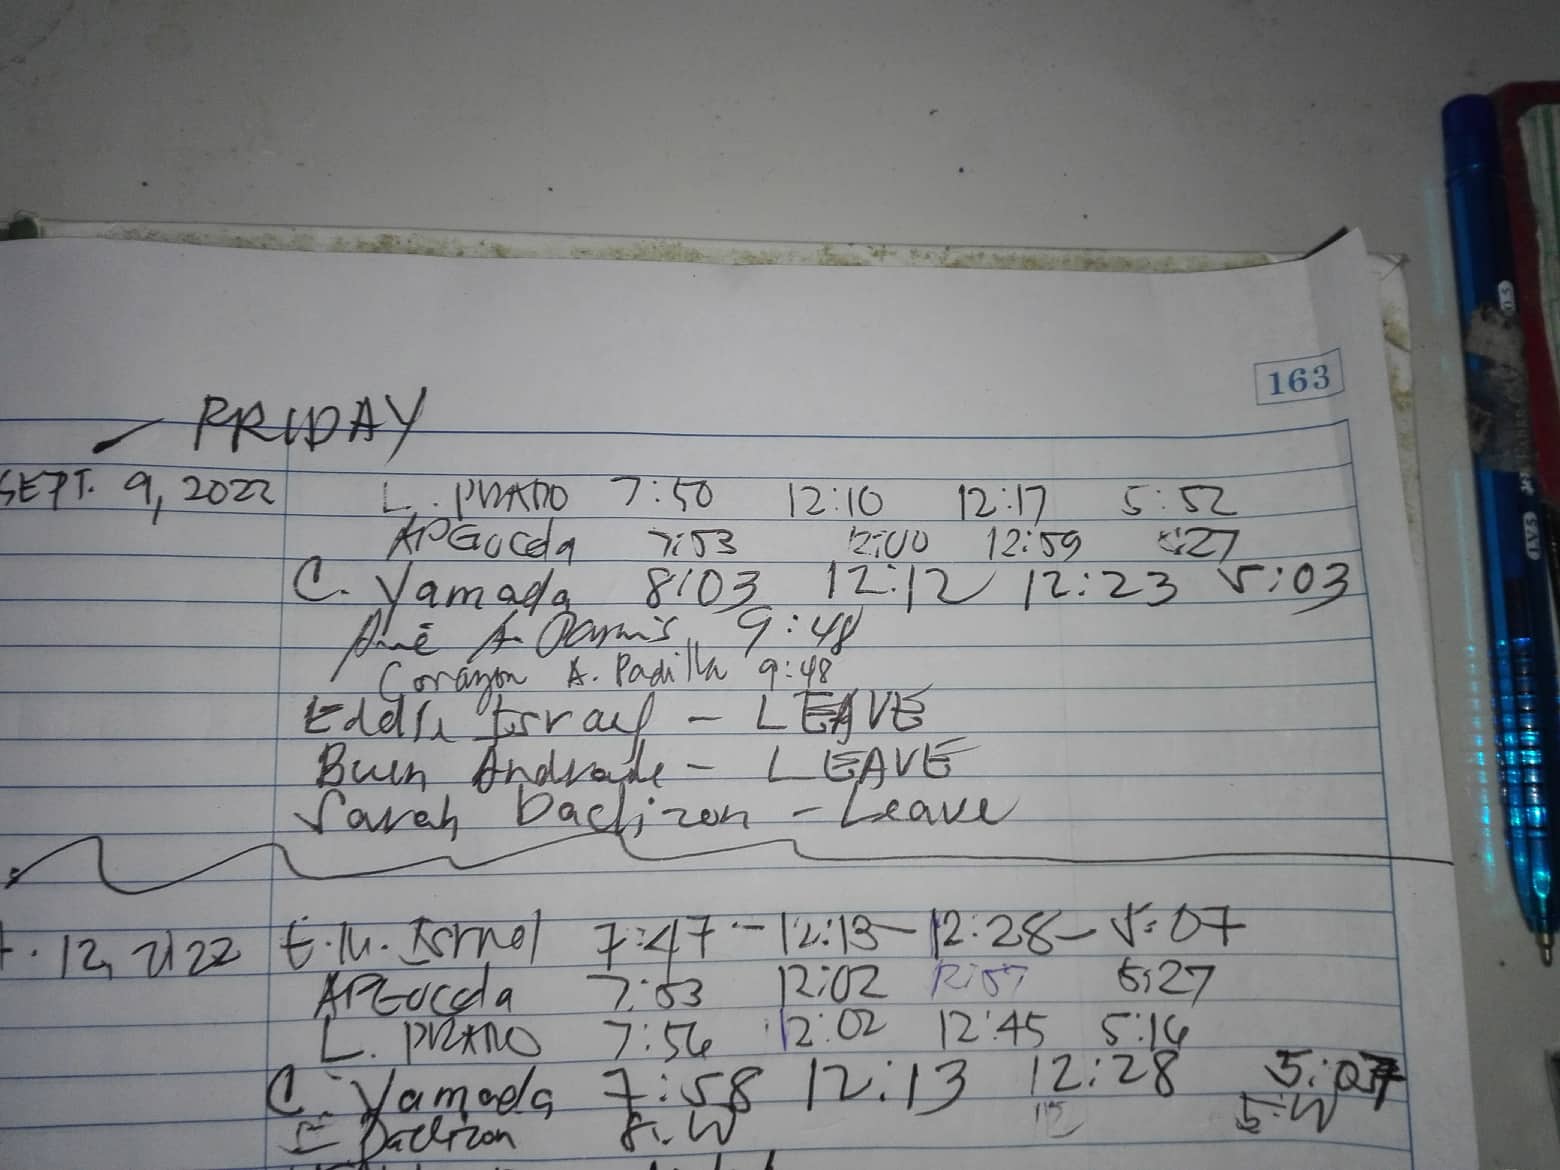 163
FRIDAY
SEPT. 9, 2022 L. PRADO 7:50 12:10 12:17 5:52
7:53 12:00 12:59 5:27
C. Yamada 8:03 12:12 12:23 5:03
A. 9:48
Corazon A. Padilla 9:48
Eddie Israel - LEAVE
Buen Andrade - LEAVE
Sarah Daclizon - Leave
12, 2022 E.M. Israel 7:47 - 12:13 - 12:28 - 5:07
7:53 12:02 12:57 5:27
L. PRADO 7:56 12:02 12:45 5:16
C. Yamada 7:58 12:13 12:28 5:07
Daclizon